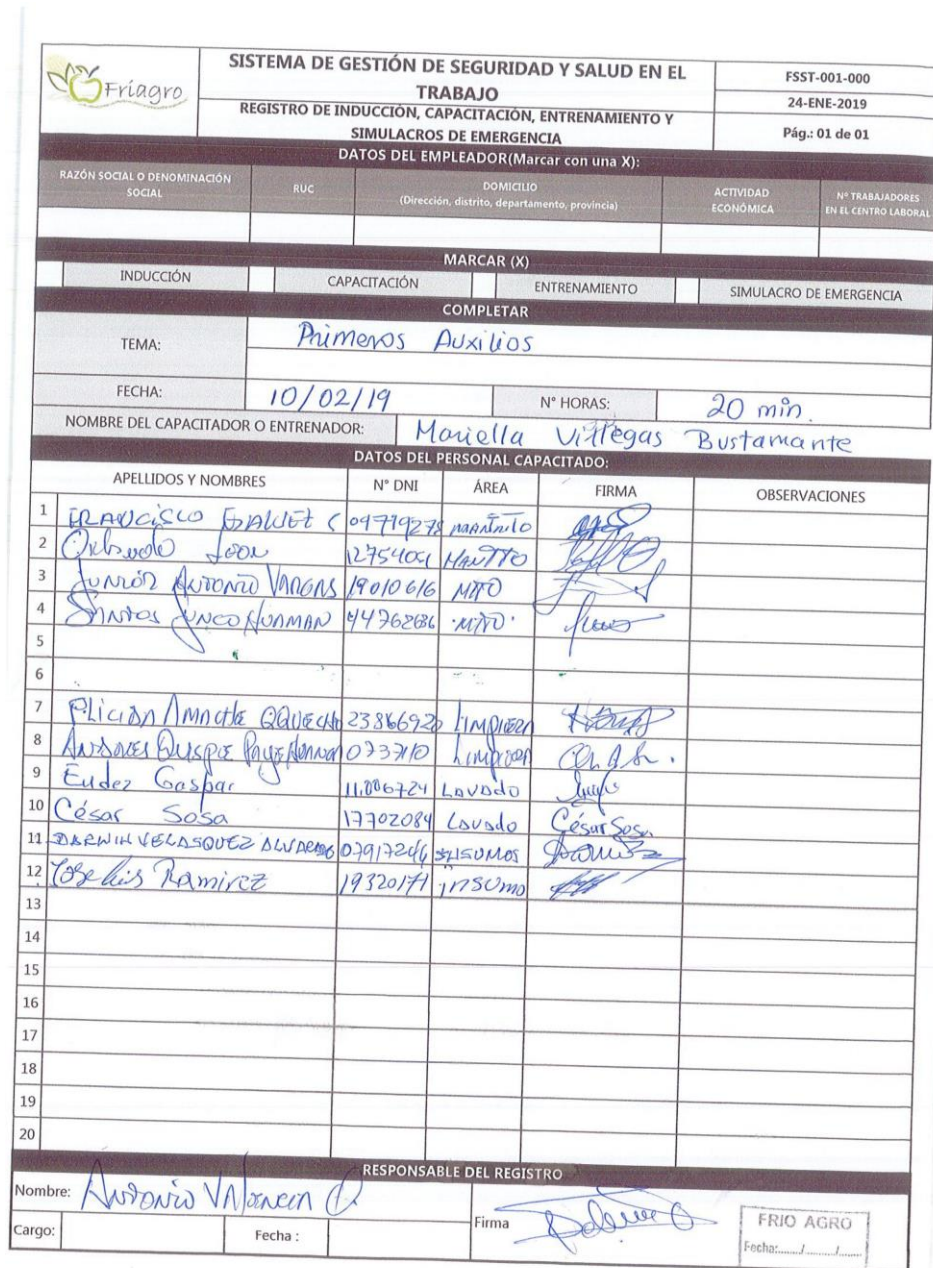 Fríagro
SISTEMA DE GESTIÓN DE SEGURIDAD Y SALUD EN EL
TRABAJO
REGISTRO DE INDUCCIÓN, CAPACITACIÓN, ENTRENAMIENTO Y
SIMULACROS DE EMERGENCIA
FSST-001-000
24-ENE-2019
Pág.: 01 de 01
DATOS DEL EMPLEADOR(Marcar con una X):
RAZÓN SOCIAL O DENOMINACIÓN
SOCIAL
RUC
DOMICILIO
(Dirección, distrito, departamento, provincia)
ACTIVIDAD
ECONÓMICA
N° TRABAJADORES
EN EL CENTRO LABORAL
MARCAR (X)
INDUCCIÓN CAPACITACIÓN ENTRENAMIENTO SIMULACRO DE EMERGENCIA
COMPLETAR
TEMA: Primeros Auxilios
FECHA: 10/02/19 N° HORAS: 20 min.
NOMBRE DEL CAPACITADOR O ENTRENADOR: Mariella Villegas Bustamante
DATOS DEL PERSONAL CAPACITADO:
APELLIDOS Y NOMBRES N° DNI ÁREA FIRMA OBSERVACIONES
1 FRANCISCO 09719278
2 Orlando León 12754051 MANTTO
3 JUNIOR ANTONIO VARGAS 19010616 MTTO
4 SANTOS JUNCO HUAMAN 44762686 MTTO
5
6
7 23866920 LIMPIEZA
8 QUISPE LIMPIEZA
9 Eudez Gaspar 11.006724 LAVADO
10 César Sosa 17702084 LAVADO César Sosa
11 DARWIN VELASQUEZ ALVARADO 07917246 INSUMOS
12 José Luis Ramirez 19320171 insumo
13
14
15
16
17
18
19
20
RESPONSABLE DEL REGISTRO
Nombre: Antonio Valencia Q Firma
Cargo: Fecha :
FRIO AGRO
Fecha:....../........./.......